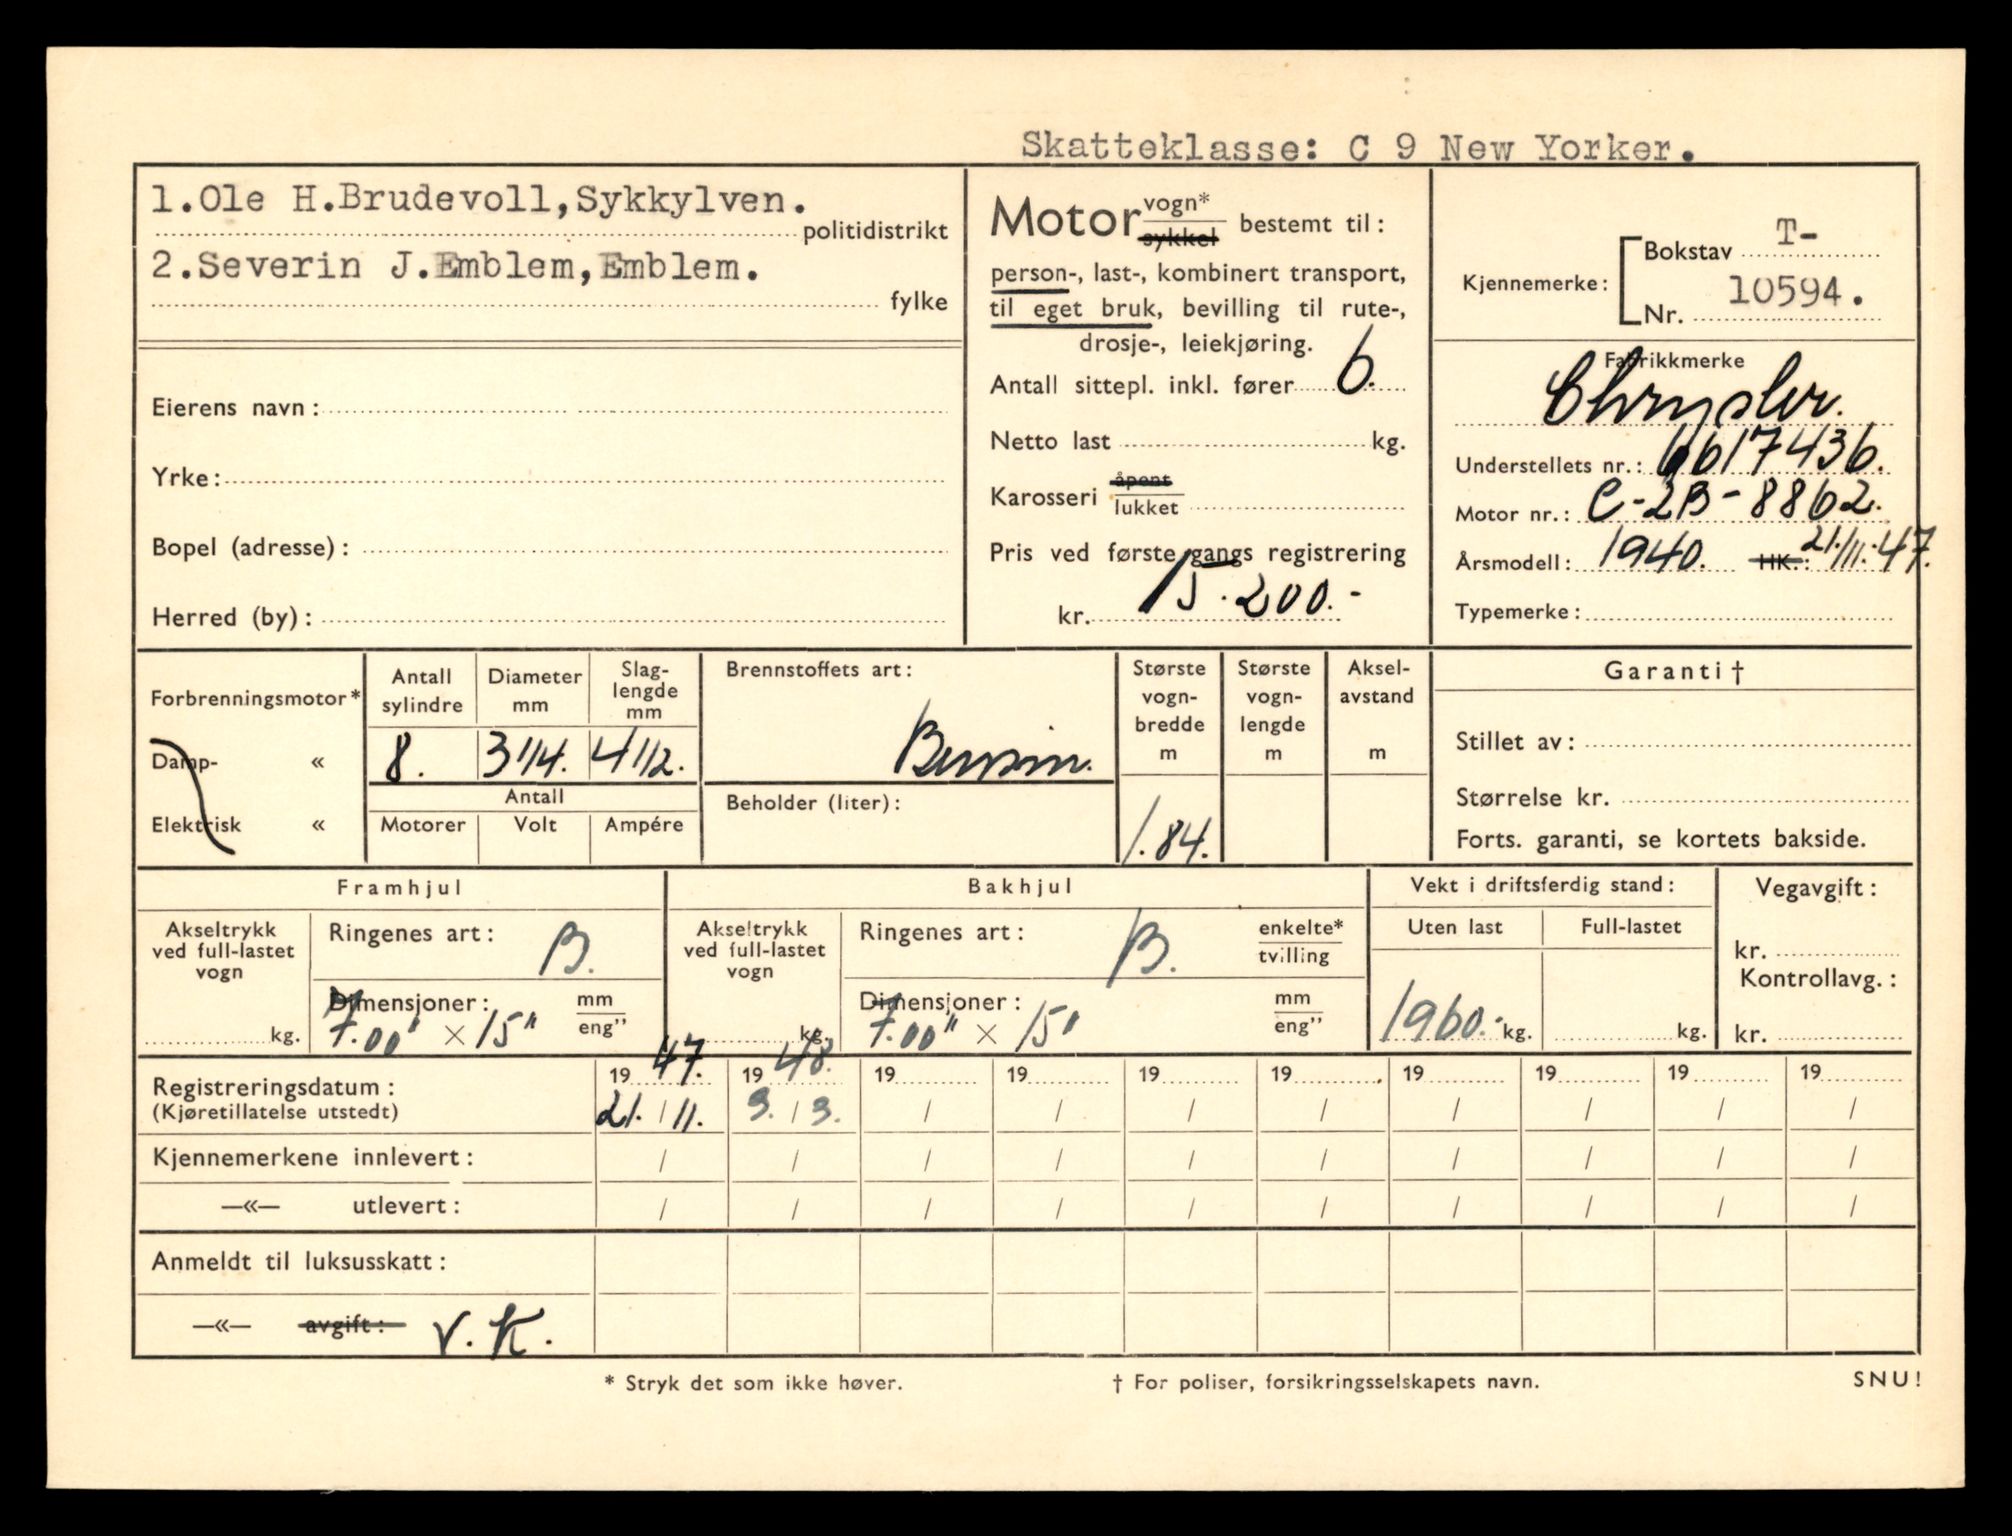 Skatteklasse: C 9 New Yorker.
1.Ole H.Brudevoll,Sykkylven.
politidistrikt
2.Severin J.Emblem,Emblem.
fylke
Eierens navn:
Yrke:
Bopel (adresse):
Herred (by):
Motor vogn*
sykkel bestemt til:
person-, last-, kombinert transport,
til eget bruk, bevilling til rute-,
drosje-, leiekjøring.
Antall sittepl. inkl. fører 6.
Netto last kg.
Karosseri åpent
lukket
Pris ved første gangs registrering
kr. 15.200.-
Kjennemerke: Bokstav T-
Nr. 10594.
Fabrikkmerke
Chrysler.
Understellets nr.: 6617436.
Motor nr.: C-2B-8862.
Årsmodell: 1940. HK.: 21./11.47.
Typemerke:
Forbrenningsmotor*
Damp- «
Elektrisk «
Antall sylindre
8.
Diameter mm
3 1/4.
Slag-
lengde
mm
4 1/2.
Antall
Motorer Volt Ampére
Brennstoffets art:
Bensin.
Beholder (liter):
Største
vogn-
bredde
m
1.84.
Største
vogn-
lengde
m
Aksel-
avstand
m
Garanti †
Stillet av:
Størrelse kr.
Forts. garanti, se kortets bakside.
Framhjul
Akseltrykk
ved full-lastet
vogn
kg.
Ringenes art: B.
Dimensjoner: mm
eng"
7.00" × 15"
Bakhjul
Akseltrykk
ved full-lastet
vogn
kg.
Ringenes art: B. enkelte*
tvilling
Dimensjoner: mm
eng"
7.00" × 15"
Vekt i driftsferdig stand:
Uten last Full-lastet
1960.- kg. kg.
Vegavgift:
kr.
Kontrollavg.:
kr.
Registreringsdatum: 19 47. 19 48. 19 19 19 19 19 19 19 19
(Kjøretillatelse utstedt) 21. / 11. 3. / 3. / / / / / / / /
Kjennemerkene innlevert: / / / / / / / / / /
—«— utlevert: / / / / / / / / / /
Anmeldt til luksusskatt:
—«— avgift: V. K.
* Stryk det som ikke høver.
† For poliser, forsikringsselskapets navn.
SNU!